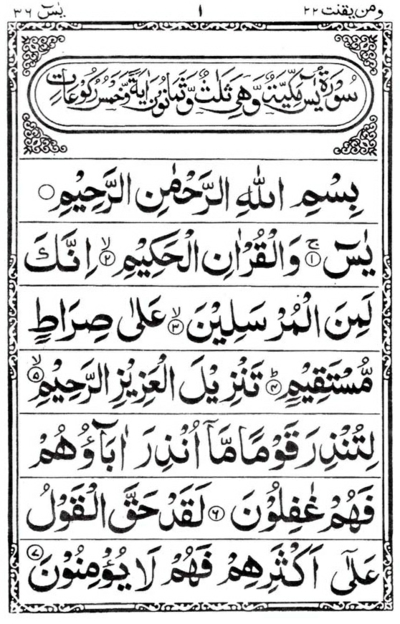 ومن یقنت ۲۲ ۱ یٰسٓ ۳۶
سُوْرَةُ يٰسٓ مَكِّيَّةٌ وَّهِىَ ثَلٰثٌ وَّثَمَانُوْنَ اٰيَةً وَّخَمْسُ رُكُوْعَاتٍ
بِسْمِ اللّٰهِ الرَّحْمٰنِ الرَّحِيْمِ
يٰسٓ ۚ‏﴿۱﴾ وَالْقُرْاٰنِ الْحَكِيْمِ ۙ‏﴿۲﴾ اِنَّكَ
لَمِنَ الْمُرْسَلِيْنَ ۙ‏﴿۳﴾ عَلٰى صِرَاطٍ
مُّسْتَقِيْمٍ ؕ‏﴿۴﴾ تَنْزِيْلَ الْعَزِيْزِ الرَّحِيْمِ ۙ‏﴿۵﴾
لِتُنْذِرَ قَوْمًا مَّاۤ اُنْذِرَ اٰبَآؤُهُمْ
فَهُمْ غٰفِلُوْنَ ﴿۶﴾ لَقَدْ حَقَّ الْقَوْلُ
عَلٰٓى اَكْثَرِهِمْ فَهُمْ لَا يُؤْمِنُوْنَ ﴿۷﴾